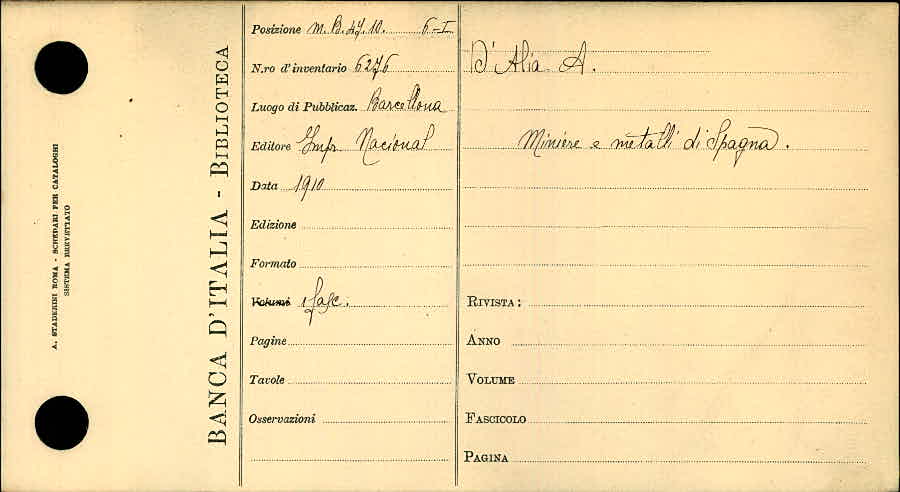 A. STADERINI ROMA - SCHEDARI PER CATALOGHI
SISTEMA BREVETTATO
BANCA D'ITALIA - BIBLIOTECA
Posizione M. B. 47. 10. 6-I
N.ro d'inventario 6276
Luogo di Pubblicaz. Barcellona
Editore Impr. Nacional
Data 1910
Edizione
Formato
Volumi 1 fasc.
Pagine
Tavole
Osservazioni
D'Alia A.
Miniere e metalli di Spagna.
RIVISTA:
ANNO
VOLUME
FASCICOLO
PAGINA